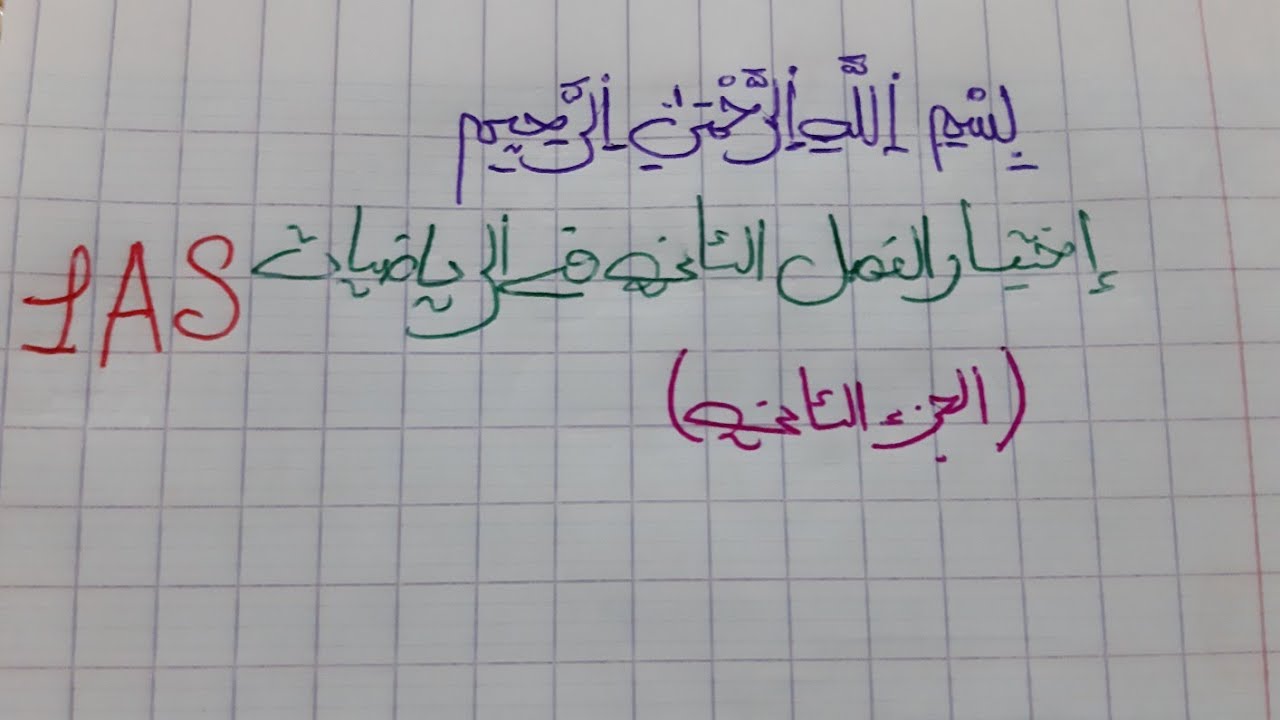 بِسْمِ اللَّهِ الرَّحْمَنِ الرَّحِيمِ
إختبار الفصل الثاني في الرياضيات 1AS
(الجزء الثاني)